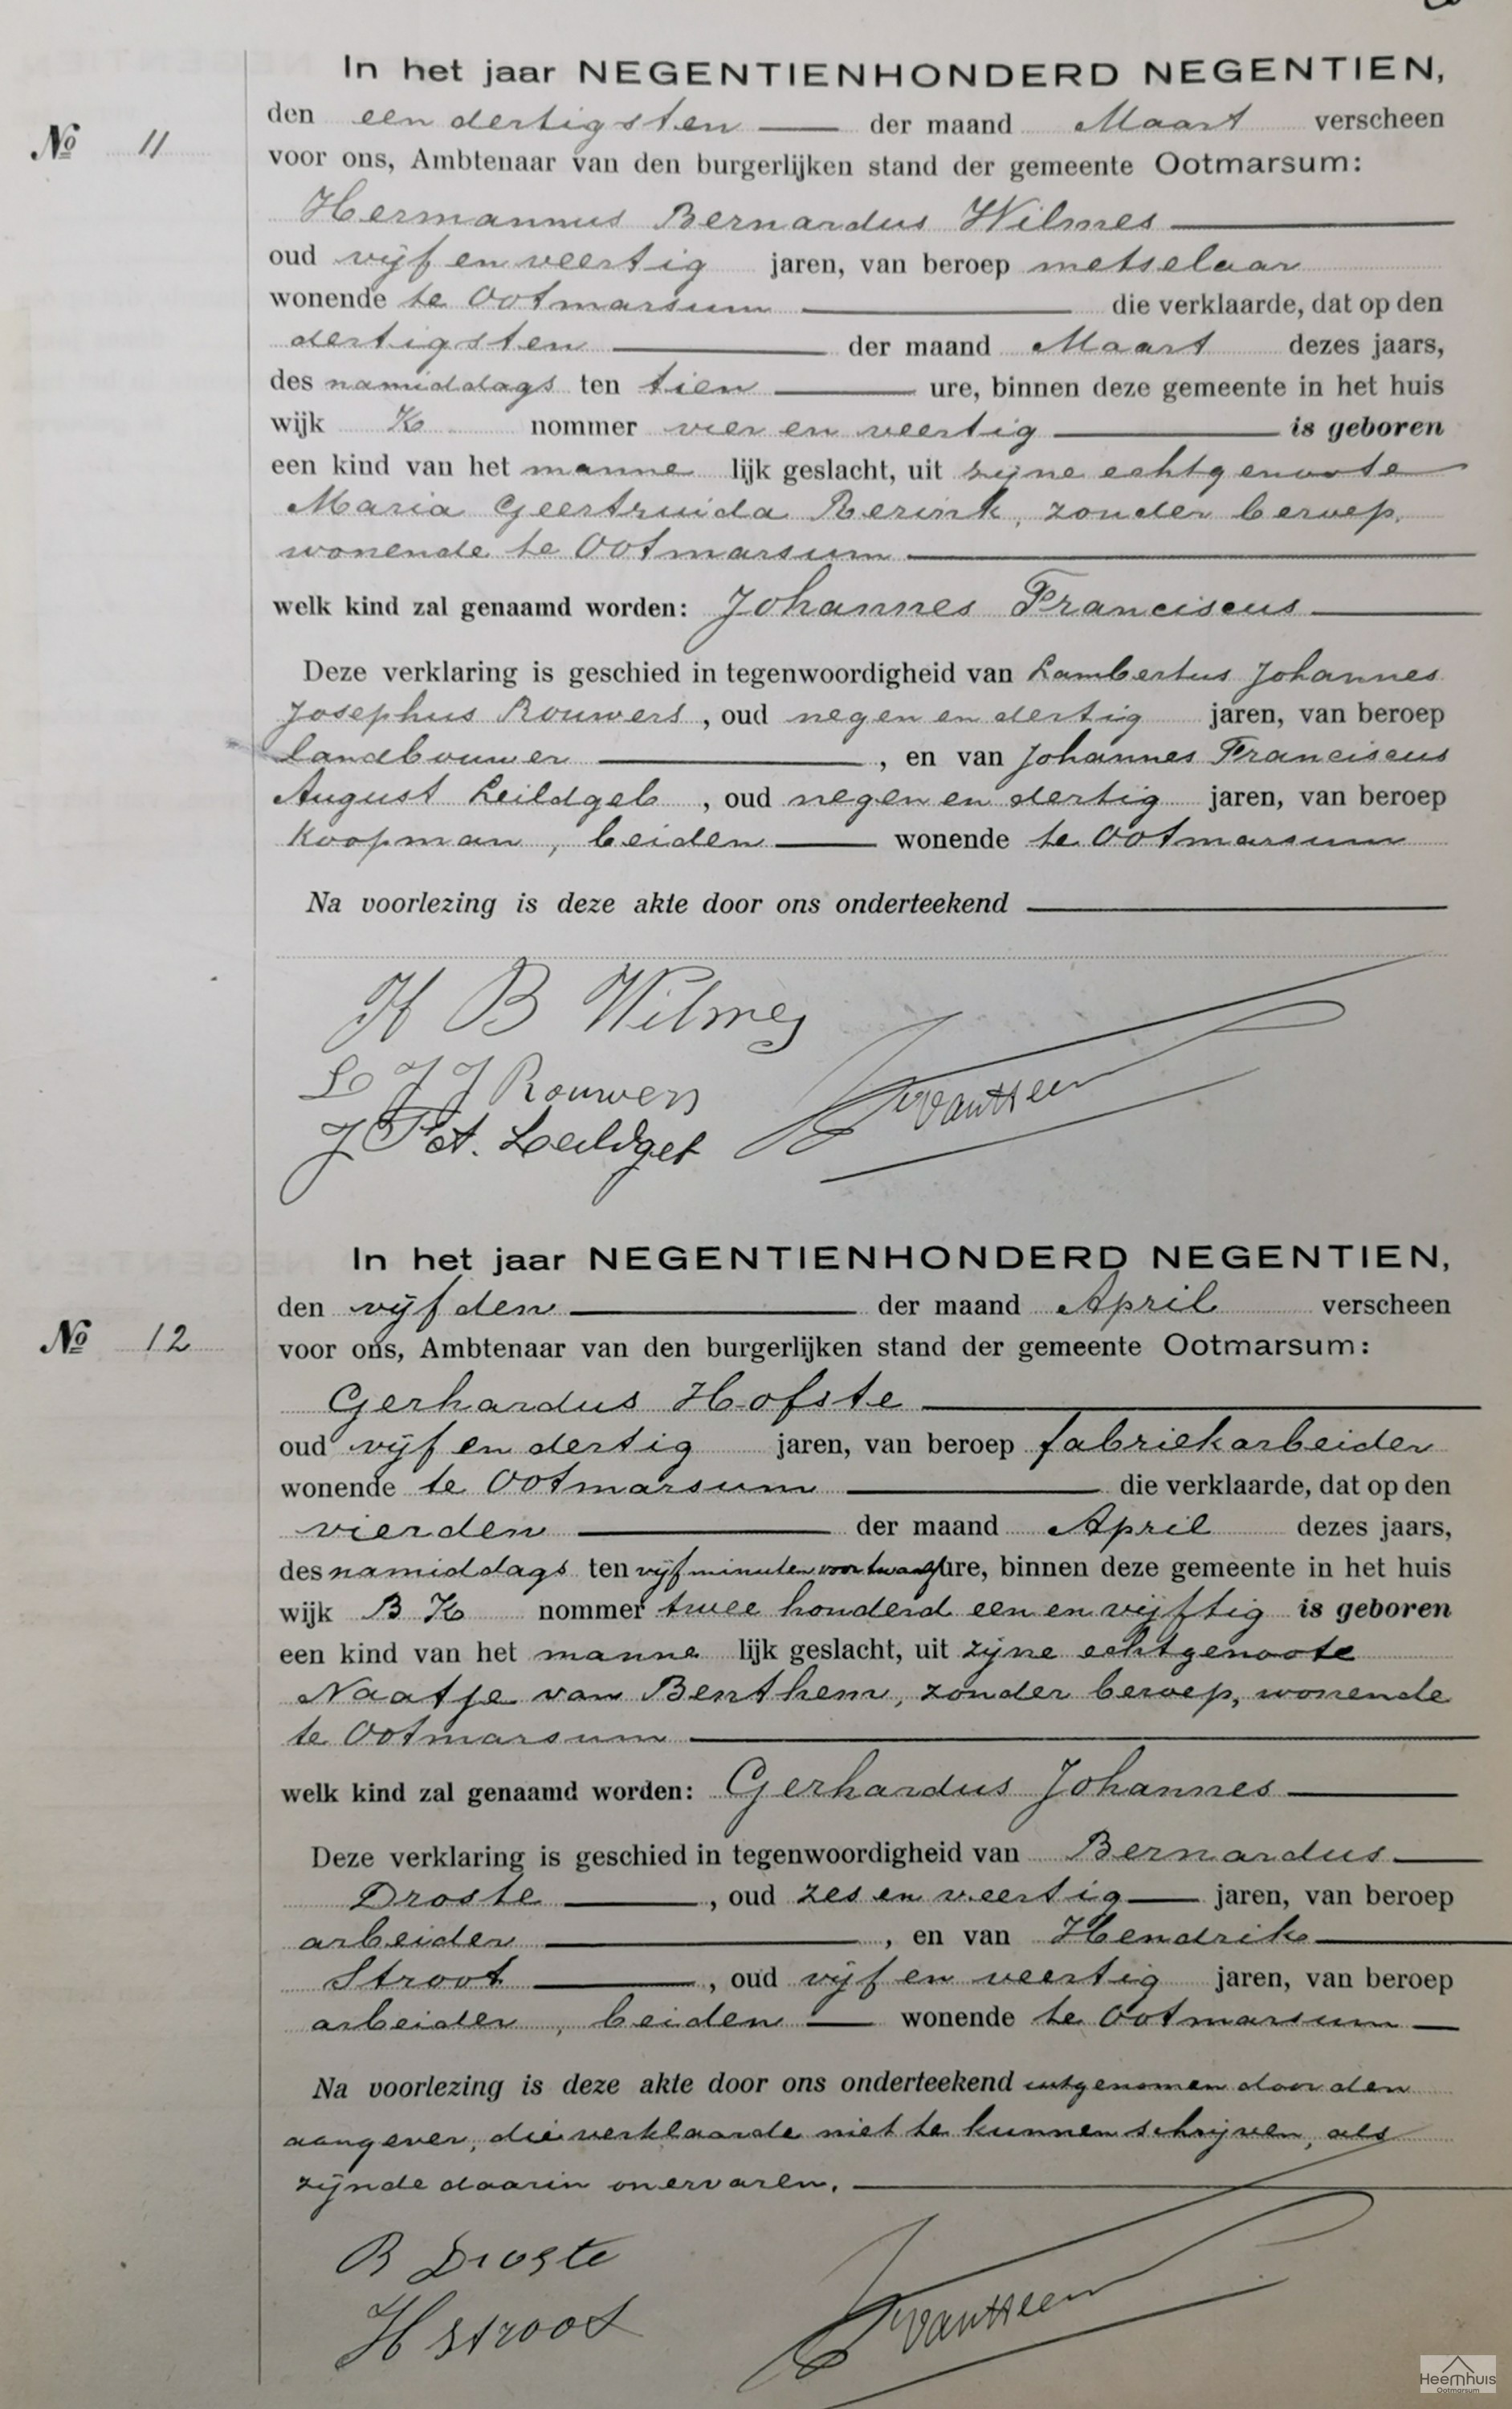 In het jaar NEGENTIENHONDERD NEGENTIEN,
den een dertigsten der maand Maart verscheen
No 11
voor ons, Ambtenaar van den burgerlijken stand der gemeente Ootmarsum:
Hermannus Bernardus Wilmes
oud vijf en veertig jaren, van beroep metselaar
wonende te Ootmarsum die verklaarde, dat op den
dertigsten der maand Maart dezes jaars,
des namiddags ten tien ure, binnen deze gemeente in het huis
wijk K nommer vier en veertig is geboren
een kind van het manne lijk geslacht, uit zijne echtgenoote
Maria Geertruida Rerink, zonder beroep,
wonende te Ootmarsum
welk kind zal genaamd worden: Johannes Franciscus
Deze verklaring is geschied in tegenwoordigheid van Lambertus Johannes
Josephus Rouwers, oud negen en dertig jaren, van beroep
landbouwer, en van Johannes Franciscus
August Leildgeb, oud negen en dertig jaren, van beroep
koopman, beiden wonende te Ootmarsum
Na voorlezing is deze akte door ons onderteekend
H B Wilmes
L J J Rouwers
J F A. Leildgeb
In het jaar NEGENTIENHONDERD NEGENTIEN,
den vijfden der maand April verscheen
No 12
voor ons, Ambtenaar van den burgerlijken stand der gemeente Ootmarsum:
Gerhardus Hofste
oud vijf en dertig jaren, van beroep fabriekarbeider
wonende te Ootmarsum die verklaarde, dat op den
vierden der maand April dezes jaars,
des namiddags ten vijf minuten voor twaalf ure, binnen deze gemeente in het huis
wijk B K nommer twee honderd een en vijftig is geboren
een kind van het manne lijk geslacht, uit zijne echtgenoote
Naatje van Benthem, zonder beroep, wonende
te Ootmarsum
welk kind zal genaamd worden: Gerhardus Johannes
Deze verklaring is geschied in tegenwoordigheid van Bernardus
Droste, oud zes en veertig jaren, van beroep
arbeider, en van Hendrik
Stroot, oud vijf en veertig jaren, van beroep
arbeider, beiden wonende te Ootmarsum
Na voorlezing is deze akte door ons onderteekend uitgenomen door den
aangever, die verklaarde niet te kunnen schrijven, als
zijnde daarin onervaren.
B Droste
H Stroot
Heemhuis
Ootmarsum